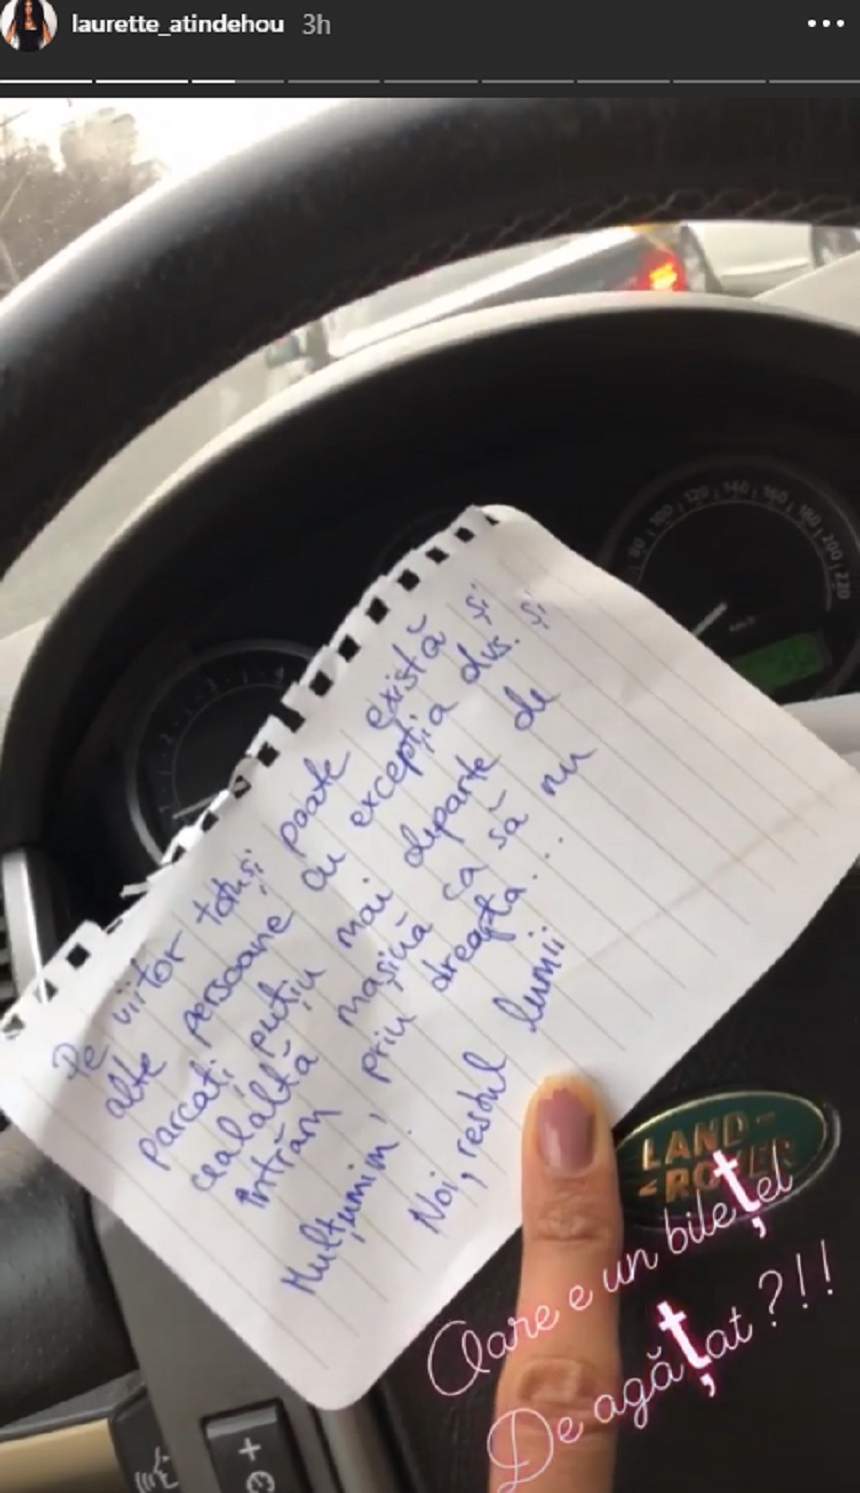 laurette_atindehou 3h
80 100 120 140 160 180 200 220
De viitor totuși poate există și
alte persoane cu excepția dvs. și
parcați puțin mai departe de
cealaltă mașină ca să nu
intrăm prin dreapta...
Mulțumim!
Noi, restul lumii
LAND-
-ROVER
Oare e un bilețel
De agățat?!!